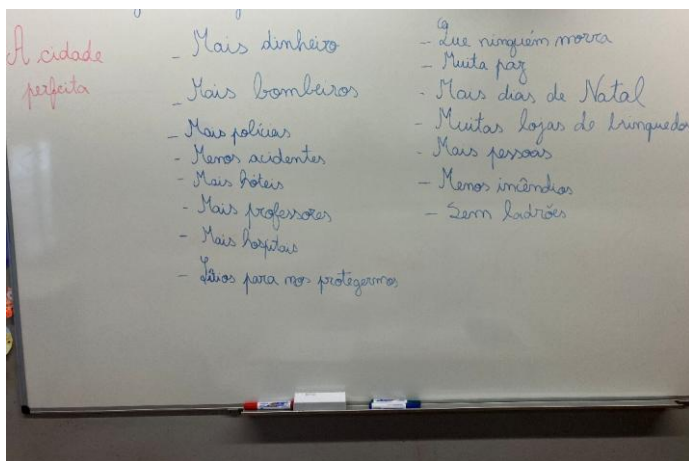 A cidade
perfeita
- Mais dinheiro
- Mais bombeiros
- Mais polícias
- Menos acidentes
- Mais hóteis
- Mais professores
- Mais hospitais
- Sítios para nos protegermos
- Que ninguém morra
- Muita paz
- Mais dias de Natal
- Muitas lojas de brinquedos
- Mais pessoas
- Menos incêndios
- Sem ladrões